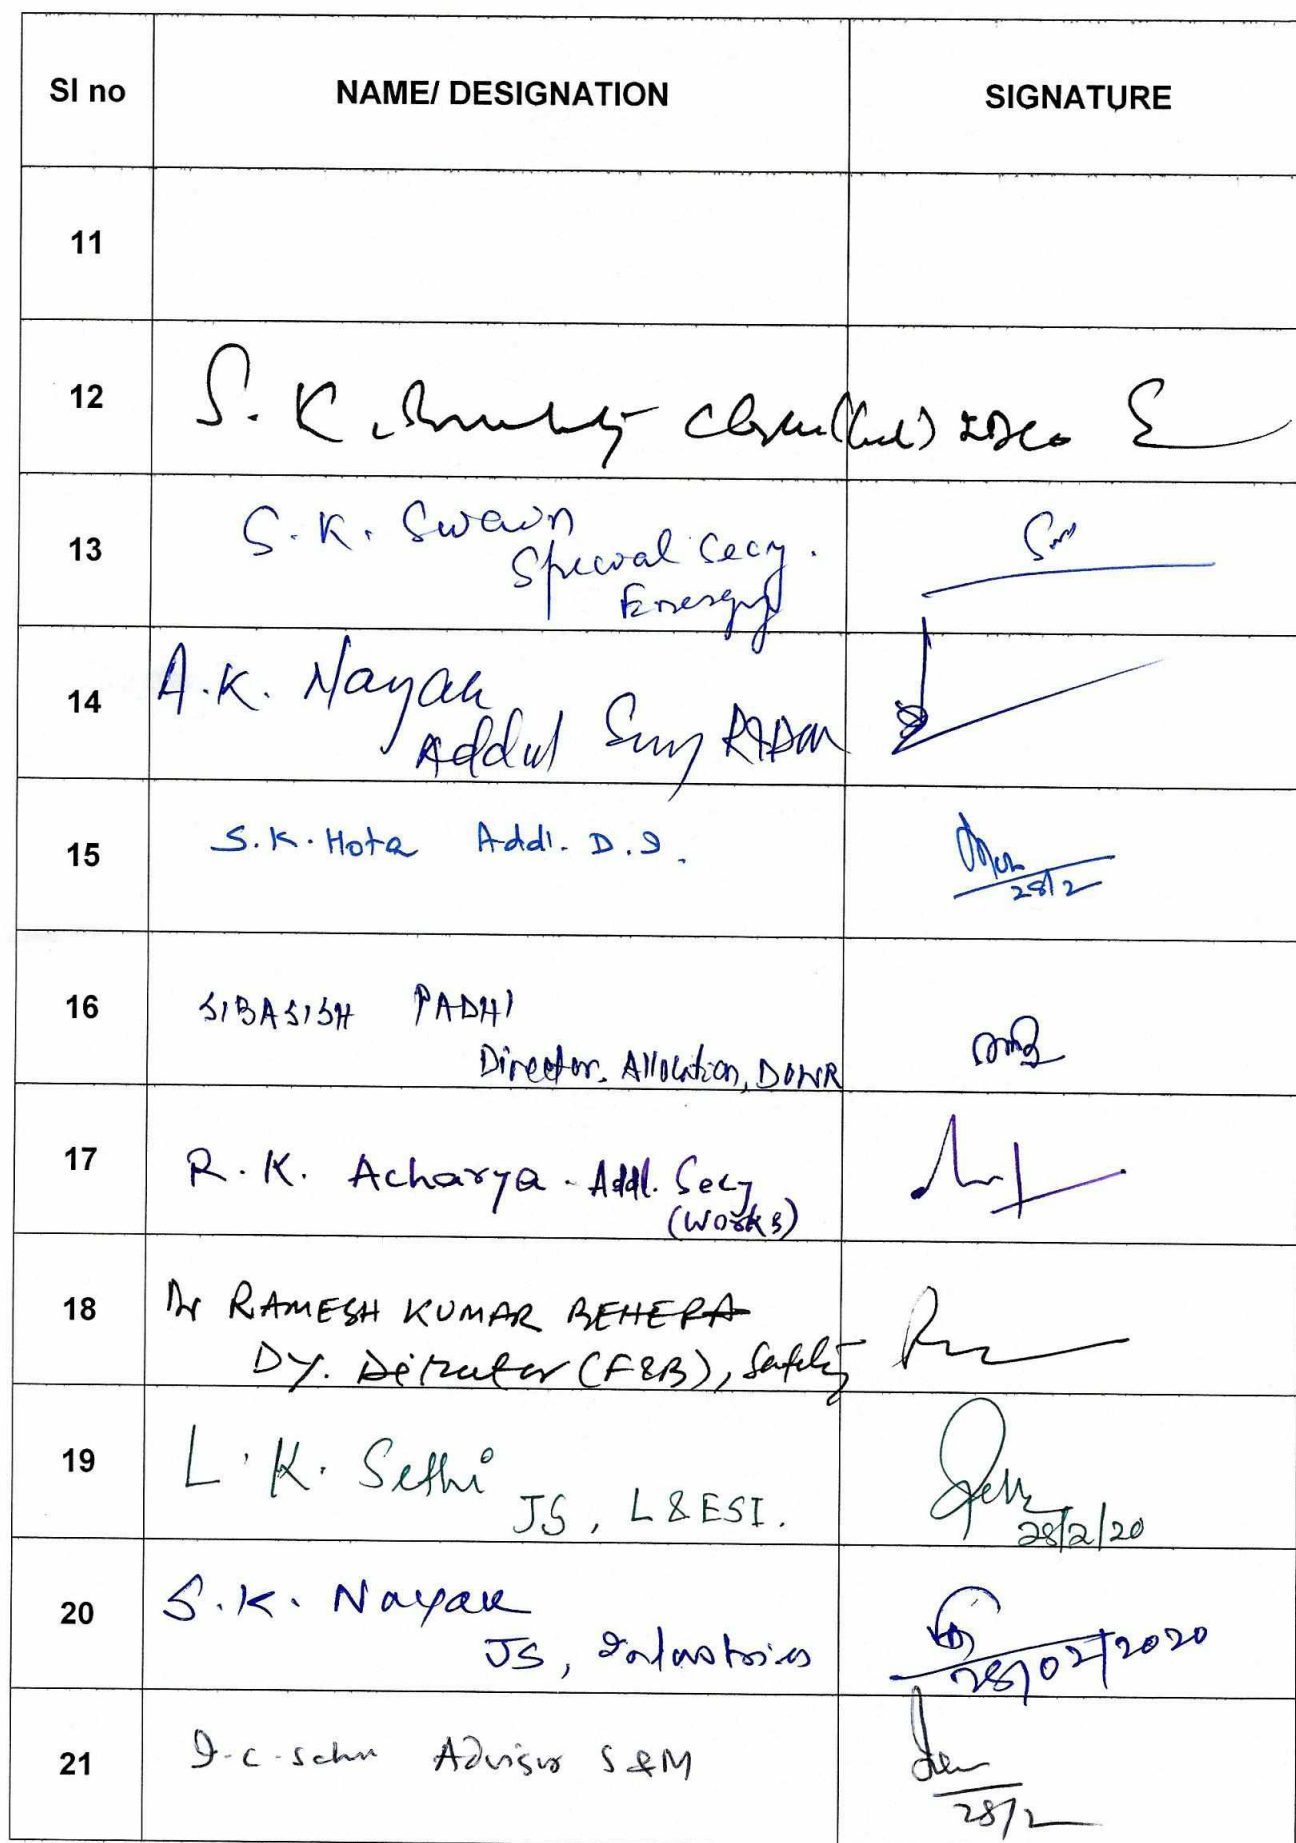 SI no NAME/ DESIGNATION SIGNATURE
11
12 S. K.
13 S. K. Swain
Special Secy.
Energy
14 A.K. Nayak
Addnl
15 S.K. Hota Addl. D.I.
28/2
16 SIBASISH PADHI
Director, Allocation, DOWR
17 R. K. Acharya - Addl. Secy
(Works)
18 Dr RAMESH KUMAR BEHERA
DY. Director (F&B), Safety
19 L. K. Sethi
JS, L & ESI.
28/2/20
20 S.K. Nayak
JS, Industries
28/02/2020
21 Advisor S & M
28/2